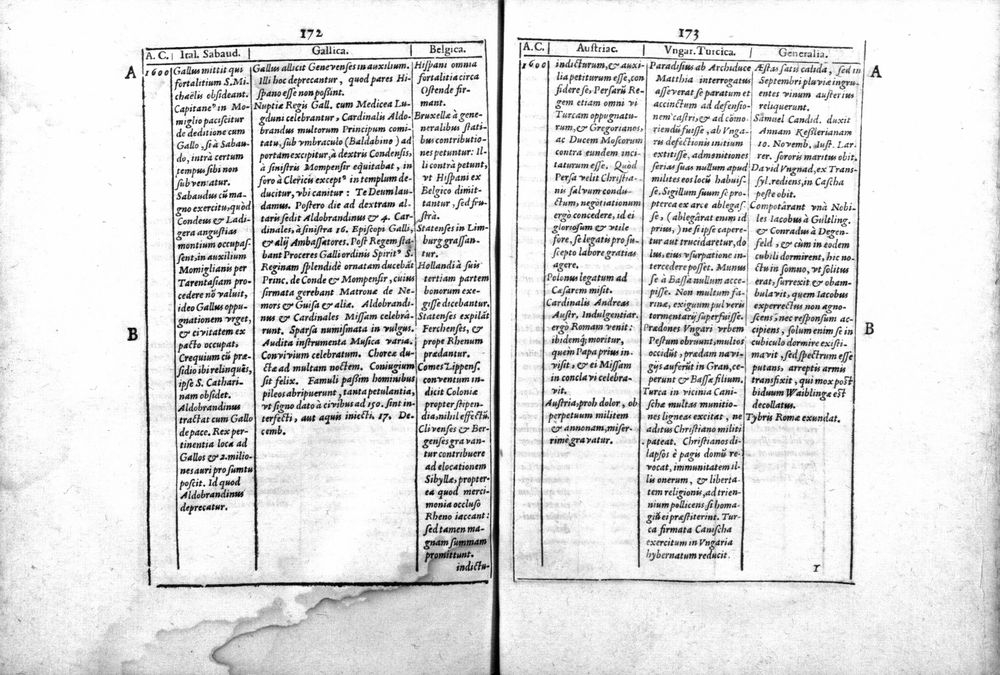 172
A. C.
Ital. Sabaud.
Gallica.
Belgica.
A
B
1600
Gallus mittit qui
fortalitium S. Mi-
chaëlis obsideant.
Capitane⁹ in Mo-
miglio paciscitur
de deditione cum
Gallo, si à Sabau-
do, intrà certum
tempus sibi non
subveniatur.
Sabaudus cũ ma-
gno exercitu, quòd
Condeus & Ladi-
gera angustias
montium occupas-
sent, in auxilium
Momiglianis per
Tarentasiam pro-
cedere nõ valuit,
ideo Gallus oppu-
gnationem vrget,
& civitatem ex
pacto occupat,
Crequium cũ præ-
sidio ibi relinquẽs,
ipse S. Cathari-
nam obsidet.
Aldobrandinus
tractat cum Gallo
de pace. Rex per-
tinentia loca ad
Gallos & 2. milio-
nes auri pro sumtu
poscit. Id quod
Aldobrandinus
deprecatur.
Gallus allicit Genevenses in auxilium.
Illi hoc deprecantur, quod pares Hi-
spano esse non possint.
Nuptiæ Regis Gall. cum Medicea Lu-
gduni celebrantur, Cardinalis Aldo-
brandus multorum Principum comi-
tatu, sub vmbraculo (Baldabino) ad
portam excipitur, à dextris Condensis,
à sinistris Mompensir equitabat, in
foro à Clericis except⁹ in templum de-
ducitur, vbi canitur: Te Deum lau-
damus. Postero die ad dextram al-
taris sedit Aldobrandinus & 4. Car-
dinales, à sinistra 16. Episcopi Galli,
& alij Ambassatores. Post Regem sta-
bant Proceres Galli ordinis Spirit⁹ S.
Reginam splendidè ornatam ducebãt
Princ. de Conde & Mompensir, cuius
sirmata gerebant Matronæ de Ne-
mors & Guisa & aliæ. Aldobrandi-
nus & Cardinales Missam celebrâ-
runt. Sparsa numismata in vulgus.
Audita instrumenta Musica varia.
Convivium celebratum. Choreæ du-
ctæ ad multam noctem. Coniugium
sit felix. Famuli passim hominibus
pileos abripuerunt, tanta petulantia,
vt signo dato à civibus ad 150. sint in-
terfecti, aut aquis iniecti. 17. De-
cemb.
Hispani omnia
fortalitia circa
Ostende fir-
mant.
Bruxellæ à gene-
ralibus stati-
bus contributio-
nes petuntur: Il-
li contrà petunt,
vt Hispani ex
Belgico dimit-
tantur, sed fru-
strà.
Statenses in Lim-
burg grassan-
tur.
Hollandi à suis
tertiam partem
bonorum exe-
gisse dicebantur.
Statenses expilãt
Ferchenses, &
prope Rhenum
prædantur.
Comes Lippens.
conventum in-
dicit Coloniæ
propter stipen-
dia, nihil effectũ.
Clivenses & Ber-
genses gravan-
tur contribuere
ad elocationem
Sibyllæ, propter-
ea quod merci-
monia occluso
Rheno iaceant:
sed tamen ma-
gnam summam
promittunt.
indictu-
173
A. C.
Austriac.
Vngar. Turcica.
Generalia.
A
B
1600
indicturum, & auxi-
lia petiturum esse, con
fidere se, Persarũ Re-
gem etiam omni vi
Turcam oppugnatu-
rum, & Gregorianos,
ac Ducem Moscorum
contra eundem inci-
taturum esse. Quòd
Persa velit Christia-
nis salvum condu-
ctum, negotiationum
ergò concedere, id ei
gloriosum & vtile
fore, se legatis pro su-
scepto labore gratias
agere.
Polonus legatum ad
Cæsarem misit.
Cardinalis Andreas
Austr. Indulgentiar.
ergò Romam venit:
ibidemq; moritur,
quem Papa prius in-
visit, & ei Missam
in conclavi celebra-
vit.
Austria, proh dolor, ob
perpetuum militem
& annonam, miser-
rimè gravatur.
Paradisius ab Archiduce
Matthia interrogatus
asseverat se paratum et
accinctum ad defensio-
nem castri, & ad cõmo-
riendũ fuisse, ab Vnga-
ris defectionis initium
extitisse, admonitiones
serias suas nullum apud
milites eos locũ habuis-
se. Sigillum suum se pro-
pterea ex arce ablegas-
se, (ablegârat enim id
prius,) ne si ipse capere-
tur aut trucidaretur, do-
lus, eius vsurpatione in-
tercedere posset. Munus
se à Bassa nullum acce-
pisse. Non multum fa-
rinæ, exiguum pulveris
tormentarij superfuisse.
Prædones Vngari vrbem
Pestum obruunt, multos
occidũt, prædam navi-
gijs auferũt in Gran, ce-
perunt & Bassæ filium.
Turca in vicinia Cani-
schæ multas munitio-
nes ligneas excitat, ne
aditus Christiano militi
pateat. Christianos di-
lapsos è pagis domũ re-
vocat, immunitatem il-
lis onerum, & liberta-
tem religionis, ad trien-
nium pollicens si homa-
giũ ei præstiterint. Tur-
ca firmata Canischa
exercitum in Vngaria
hybernatum reducit.
Æstas satis calida, sed in
Septembri pluviæ ingru-
entes vinum austerius
reliquerunt.
Sãmuel Candid. duxit
Annam Keslerianam
10. Novemb. Iust. Lar-
rer. sororis maritus obit.
David Vngnad, ex Trans-
syl. rediens, in Cascha
peste obit.
Compotârant vnà Nobi-
les Iacobus à Gültling.
& Conradus à Degen-
feld, & cùm in eodem
cubili dormirent, hic no-
ctu in somno, vt solitus
erat, surrexit & obam-
bulavit, quem Iacobus
experrectus non agno-
scens, nec responsum ac-
cipiens, solum enim se in
cubiculo dormire existi-
mavit, sed spectrum esse
putans, arreptis armis
transfixit, qui mox post
biduum Waiblingæ est
decollatus.
Tybris Romæ exundat.
1